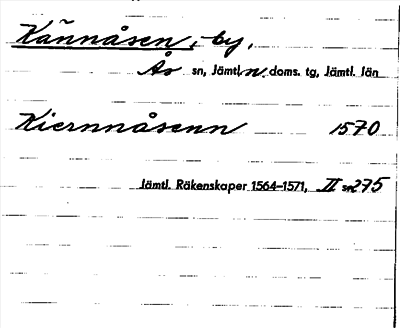 Kännåsen, by.
Ås sn, Jämtl. n. doms. tg, Jämtl. län
Kiernnåsenn 1570
Jämtl. Räkenskaper 1564–1571, II s. 275